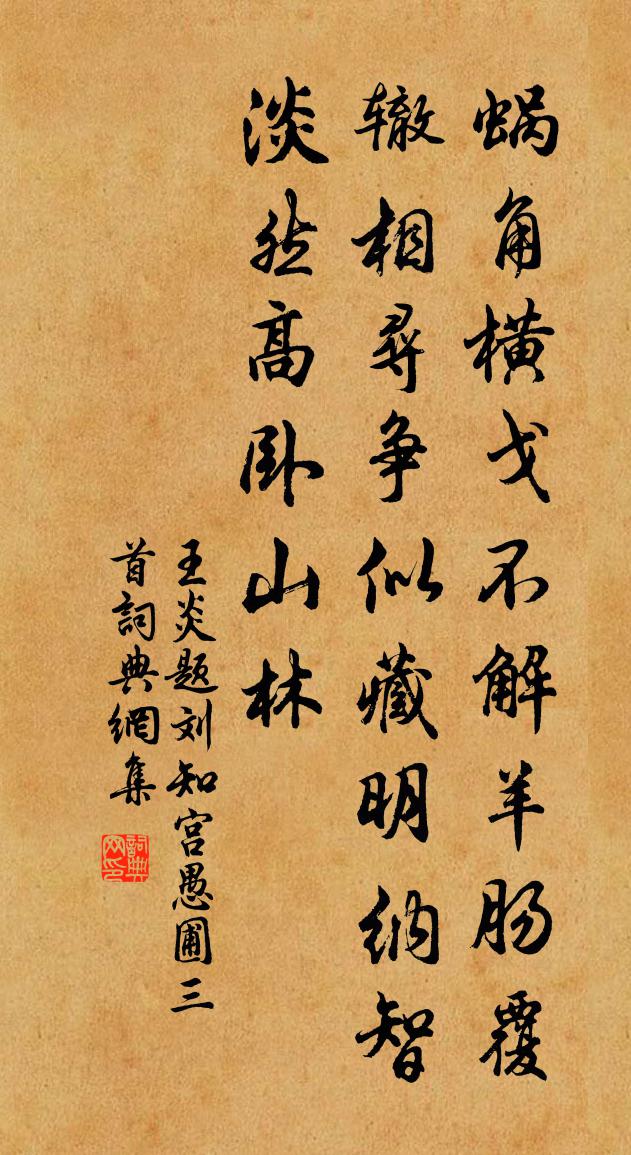 蜗角横戈不解羊肠覆
辙相寻争似藏明纳智
淡然高卧山林
王炎题刘知宫愚圃三
首詞典網集
詞典網印